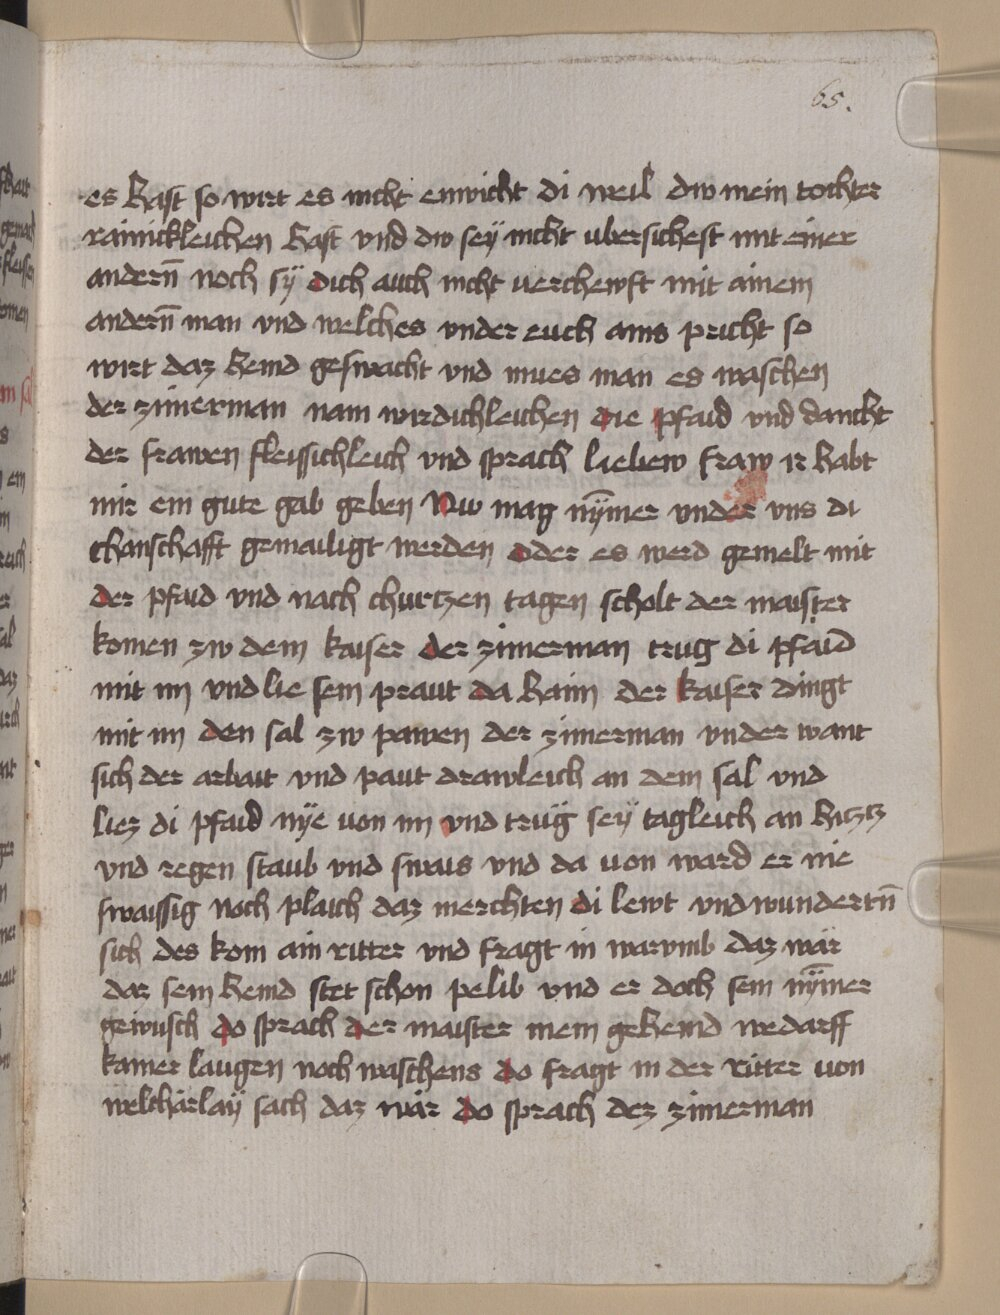 65.
es hast so wirt es nicht enwicht di weil diw mein tochter
rainickleichen hast vnd diw sey nicht ubersichest mit einer
andern̄ noch sÿ dich auch nicht uerchewft mit ainem
andern̄ man vnd welches vnder euch ains pricht so
wirt daz hemd geswacht vnd mues man es waschen
der zimerman nam wirdichleichen die pfaid vnd danckt
der frawen fleissichleich vnd sprach liebew fraw ir habt
mir ein gute gab geben Nw mag nӯmer vnder vns di
chanschafft gemailigt werden oder es werd gemelt mit
der pfaid vnd nach churtzen tagen scholt der maister
komen zw dem kaiser der zimerman trug di pfaid
mit im vnd lie sein praut da haim der kaiser dingt
mit im den sal zw pawen der zimerman vnder want
sich der arbait vnd paut drawleich an dem sal vnd
liez di pfaid nÿe von im vnd trůg seÿ tagleich an hitztz
vnd regen staub vnd swais vnd da von ward er nie
swaissig noch plaich daz merchten di lewt vnd wundertn̄
sich des kom ain ritter vnd fragt in warvmb daz wär
daz sein hemd stet schon pelib vnd er doch sein nӱmer
gewusch do sprach der maister mein gehemd nedarff
kainer laugen noch waschens do fragt in der ritter von
welchärlaÿ sach daz wär do sprach der zimerman